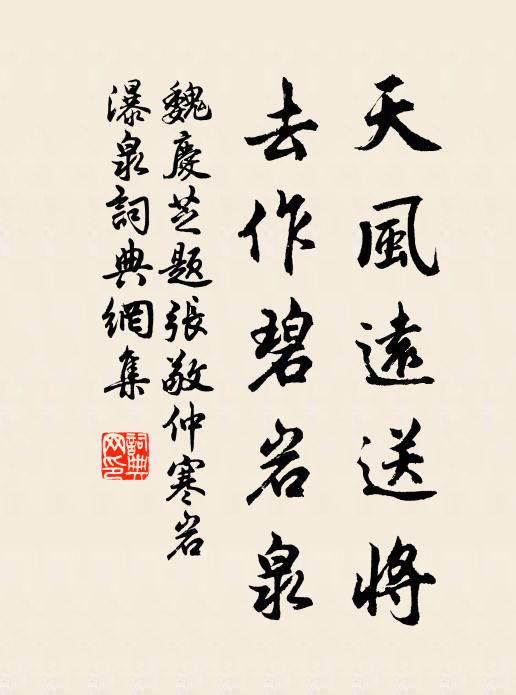 天風遠送將
去作碧岩泉
魏慶芝題張敬仲寒岩
瀑泉詞典網集
詞典
网印